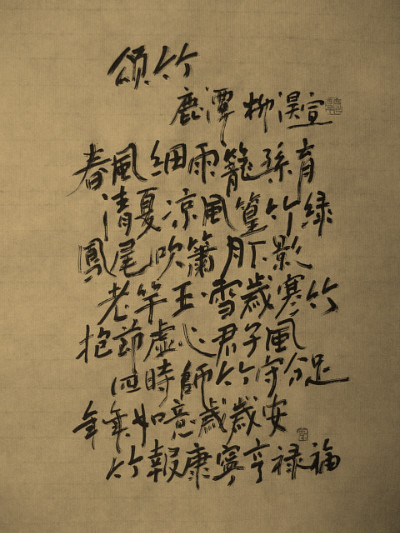 頌竹
鹿潭 柳淏宣
春風細雨籠孫育
清夏凉風篁竹綠
鳳尾吹簫月下影
老竿玉雪歲寒竹
抱節虛心君子風
四時師竹守分足
年年如意歲歲安
竹報康寧亨禄福